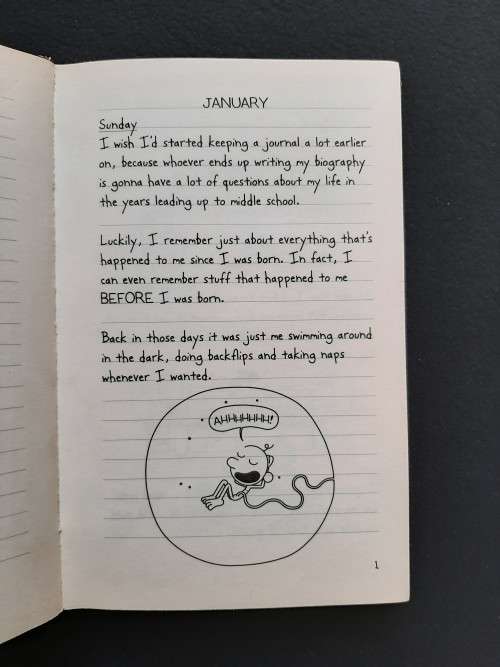 JANUARY
Sunday
I wish I'd started keeping a journal a lot earlier
on, because whoever ends up writing my biography
is gonna have a lot of questions about my life in
the years leading up to middle school.
Luckily, I remember just about everything that's
happened to me since I was born. In fact, I
can even remember stuff that happened to me
BEFORE I was born.
Back in those days it was just me swimming around
in the dark, doing backflips and taking naps
whenever I wanted.
AHHHHHH!
1